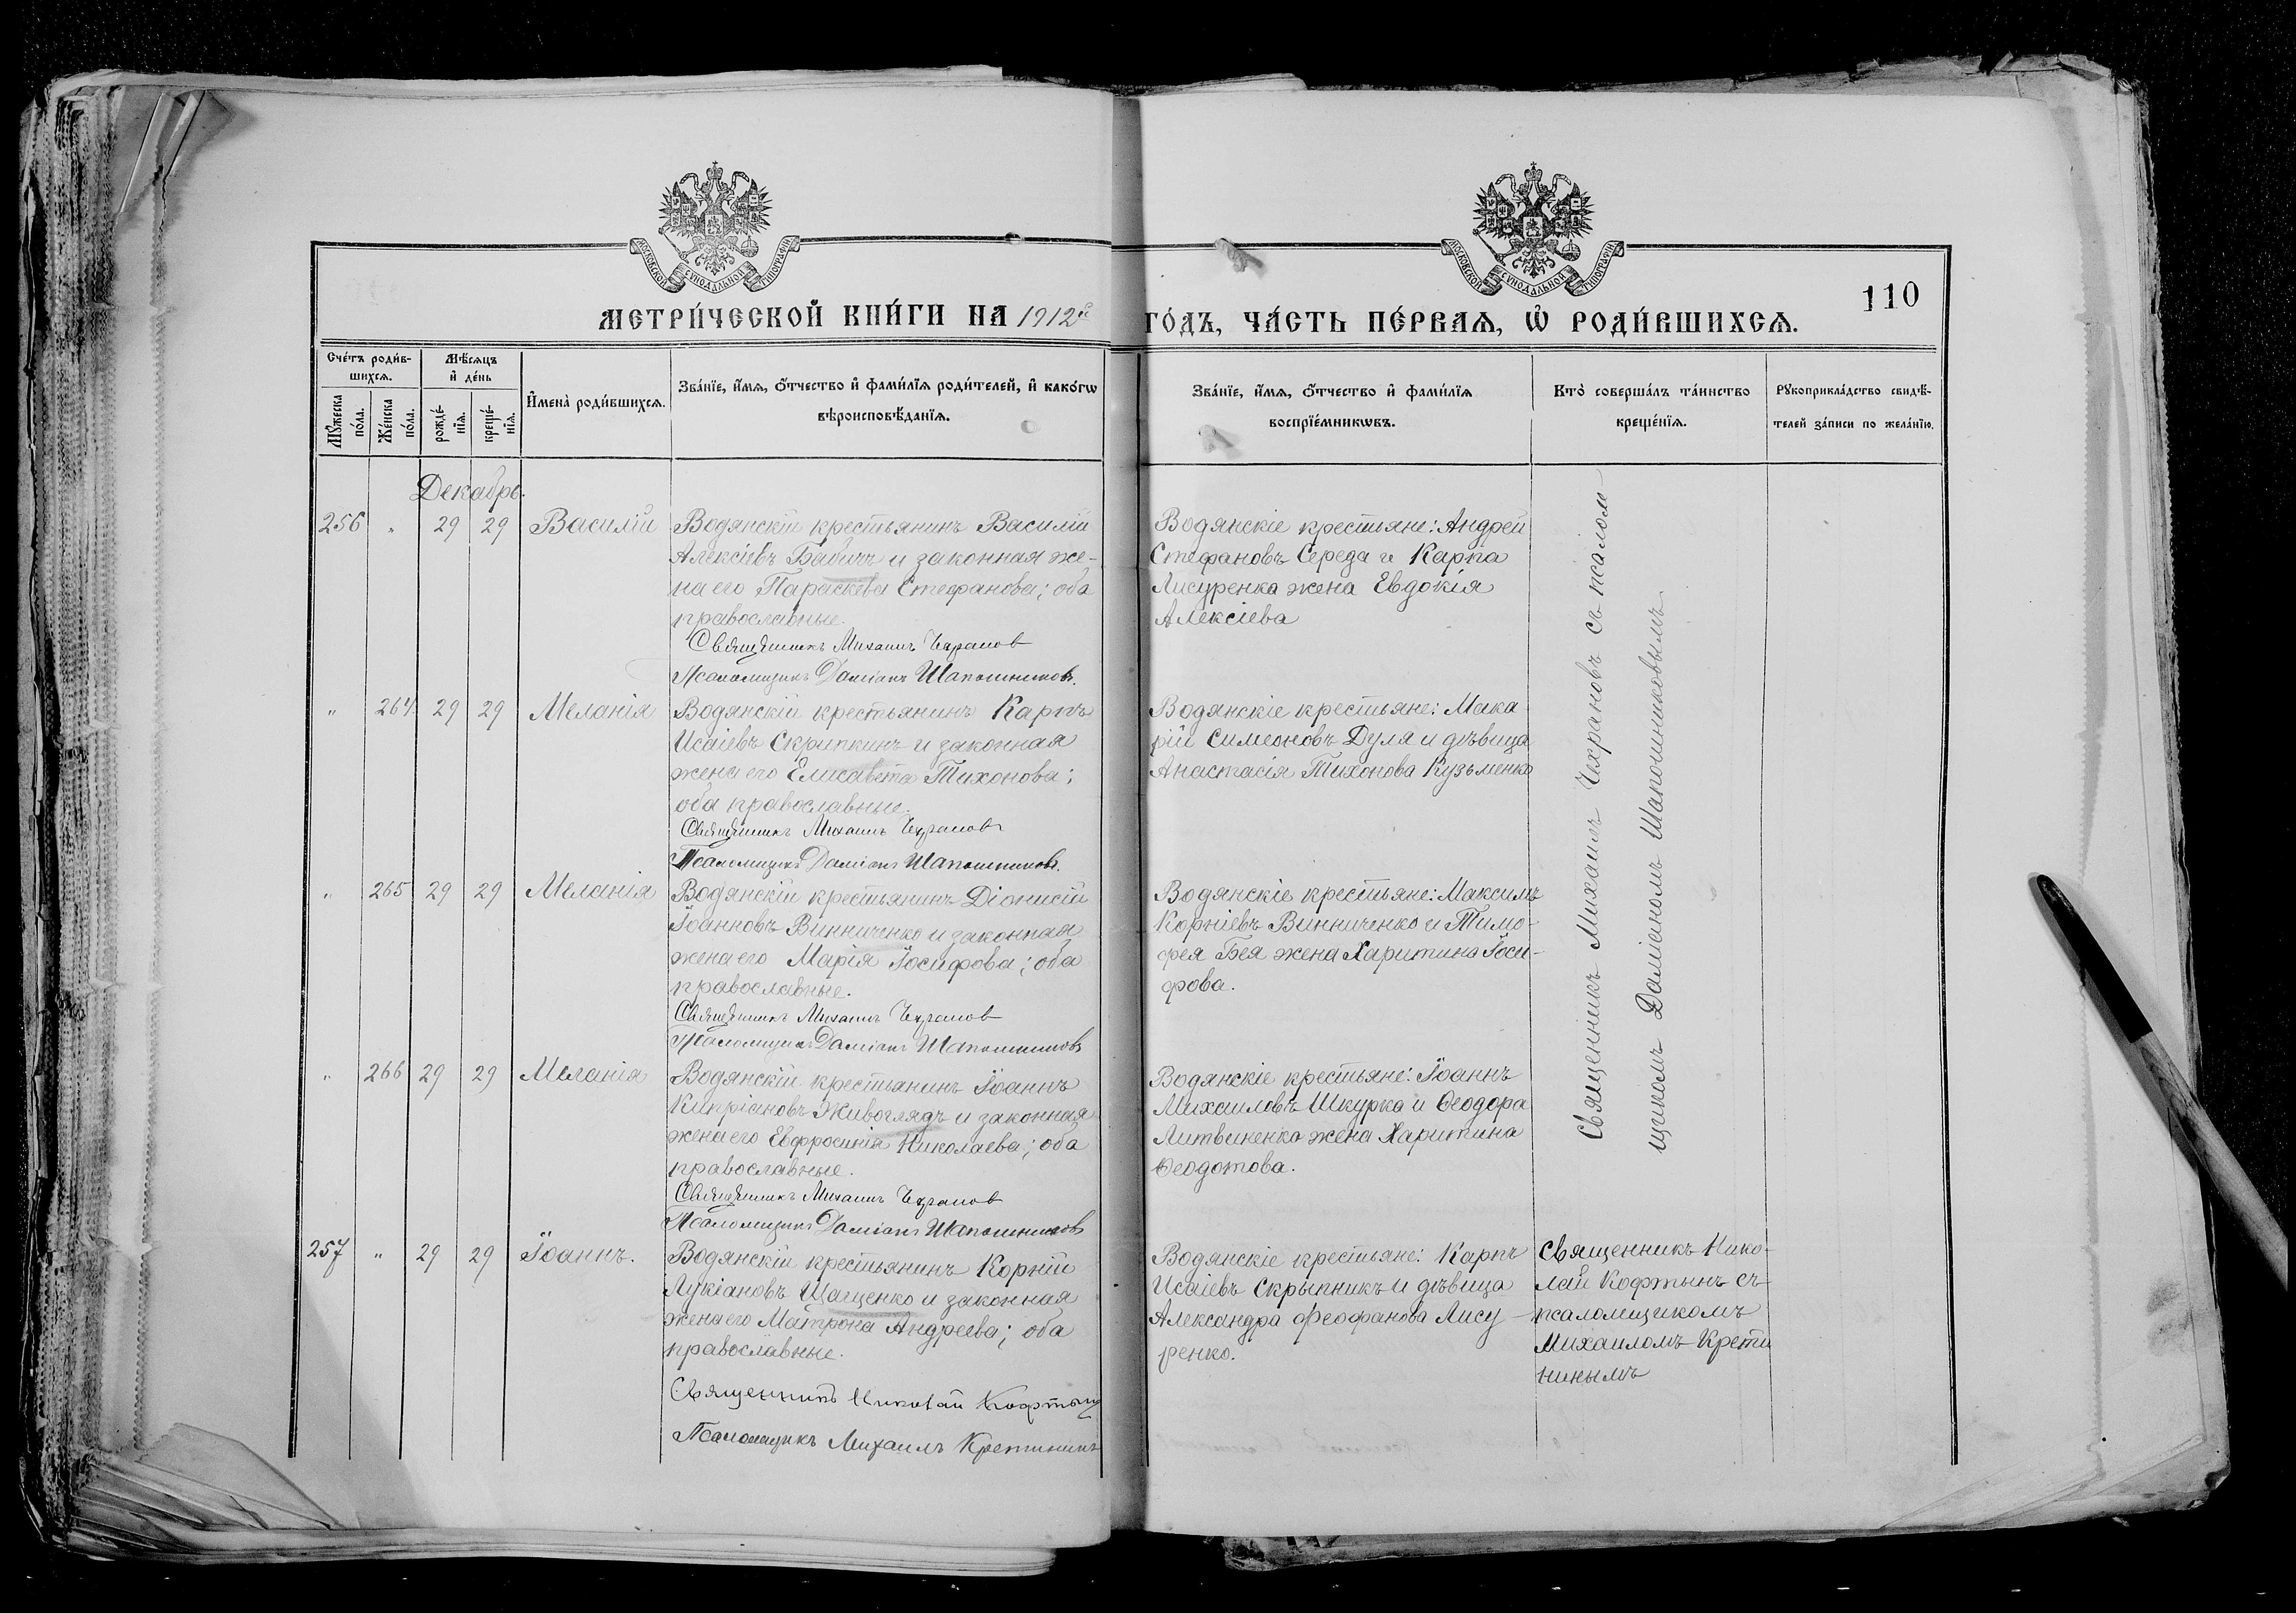 МОСКОВСКОЙ СѴНОДАЛЬНОЙ ТИПОГРАФІИ
МОСКОВСКОЙ СѴНОДАЛЬНОЙ ТИПОГРАФІИ
110
МЕТРИ́ЧЕСКОЙ КНИ́ГИ НА 1912й
ГО́ДЪ, ЧА́СТЬ ПЕ́РВАЯ, Ѽ РОДИ́ВШИХСѦ.
Сче́тъ роди́в-
шихсѧ.
Мѣ́сѧцъ
и҆ де́нь
Мꙋ́жеска по́ла.
Же́нска по́ла.
рожде́-
нїѧ.
креще́-
нїѧ.
И҆мена̀ роди́вшихсѧ.
Зва́нїе, и҆́мѧ, ѻ҆́тчество и҆ фами́лїѧ роди́телей, и҆ како́гѡ
вѣроисповѣ́данїѧ.
Зва́нїе, и҆́мѧ, ѻ҆́тчество и҆ фами́лїѧ
воспрїе́мникѡвъ.
Кто̀ соверша́лъ та́инство
креще́нїѧ.
Рꙋкоприкла́дство свидѣ́-
телей за́писи по жела́нїю.
Декабрь.
256 " 29 29 Василій
Водянскій крестьянинъ Василій
Алексіевъ Бабичъ и законная же-
на его Параскева Стефанова; оба
православные.
Священникъ Михаилъ Чехранов
Псаломщикъ Даміанъ Шапошниковъ.
Водянскіе крестьяне: Андрей
Стефановъ Середа и Карпа
Лисуренка жена Евдокія
Алексіева
Священникъ Михаилъ Чехрановъ съ псалом-
щикомъ Даміаномъ Шапошниковымъ.
" 264 29 29 Меланія
Водянскій крестьянинъ Карпъ
Исаіевъ Скрипкинъ и законная
жена его Елисавета Тихонова;
оба православные.
Священникъ Михаилъ Чехрановъ
Псаломщикъ Даміанъ Шапошниковъ.
Водянскіе крестьяне: Мака
рій Симеоновъ Дуля и дѣвица
Анастасія Тихонова Кузьменко
" 265 29 29 Меланія
Водянскій крестьянинъ Діонисій
Іоанновъ Винниченко и законная
жена его Марія Іосифова; оба
православные.
Священникъ Михаилъ Чехранов
Псаломщикъ Даміанъ Шапошниковъ
Водянскіе крестьяне: Максимъ
Корніевъ Винниченко и Тимо-
фея Бея жена Харитина Іоси-
фова.
" 266 29 29 Меланія
Водянскій крестьянинъ Іоаннъ
Кипріановъ Живоглядъ и законная
жена его Евфросинія Николаева; оба
православные.
Священникъ Михаилъ Чехранов
Псаломщикъ Даміанъ Шапошниковъ
Водянскіе крестьяне: Іоаннъ
Михаиловъ Шкурка и Ѳеодора
Литвиненка жена Харитина
Ѳеодотова.
257 " 29 29 Іоаннъ.
Водянскій крестьянинъ Корній
Лукіановъ Щащенко и законная
жена его Матрона Андреева; оба
православные.
Священникъ Николай Кофтынъ
Псаломщикъ Михаилъ Кретининъ
Водянскіе крестьяне: Карпъ
Исаіевъ Скрыпникъ и дѣвица
Александра Феофанова Лису-
ренко.
Священникъ Нико-
лай Кофтынъ съ
псаломщикомъ
Михаиломъ Крети
нинымъ